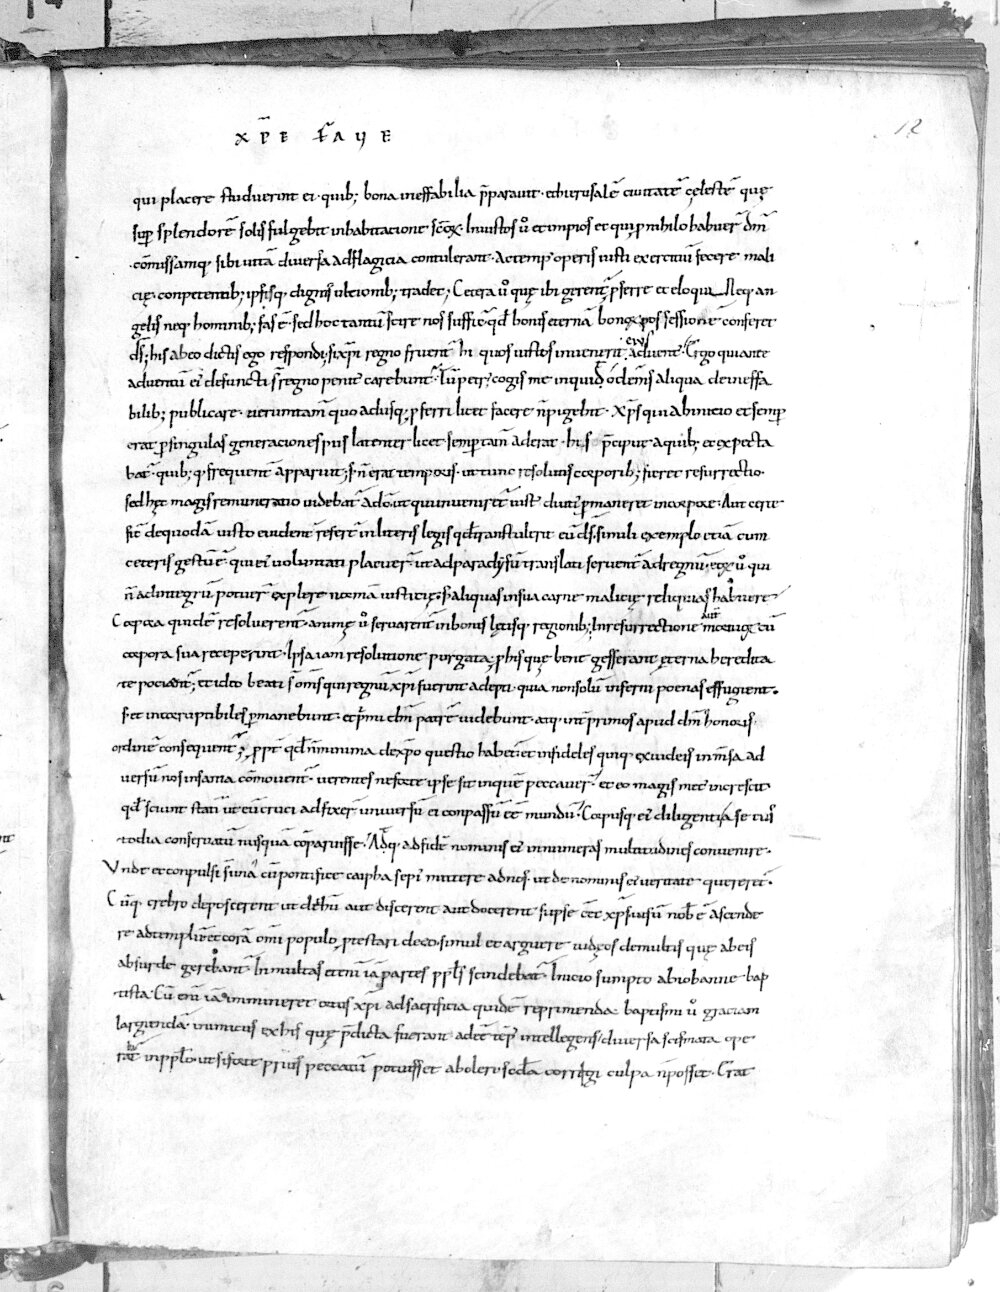 xp̄e faue
12
qui placere studuerint ei · quib; bona ineffabilia p̄parauit · ethierusalē ciuitatē cęlestē quę
suꝑ splendorē solis fulgebit inhabitatione sc̄oꝝ · Iniustos ū et impios et qui ꝓ nihilo habuer̄ dm̄
· cōmissamq; sibi uitā diuersa adflagicia contulerant · Actemp̄ operis iusti exercitiū fecere mali
cię · conpetentib; ipsisq; dignis ultionib; tradet; Cetera ū quę ibi gerent̄ ꝓferre et eloqui Neq; an
gelis neq; hominib; fas ē · sed hoc tantū scire nos suffic̄ qd̄ bonis eternā bonoꝝ possessionē conferet
ds̄; his abeo dictis ego respondi; si xp̄i regno fruent̄ hi quos iustos inuenerit eius aduent᾿ · Ergo qui ante
aduentū ei᾿ defuncti s̄ regno penit᾿ carebunt · Tū petr᾿; cogis me inquid o clemens aliqua de ineffa
bilib; publicare · uerumtam̄ quo adusq; ꝓferri licet facere n̄ pigebit · Xp̄s qui ab inicio et semꝑ
erat ꝑ singulas generationes piis latenter licet semꝑ tam̄ aderat · his p̄cipue a quib; exspecta
bat̄ · quib; q; frequent̄ apparuit; s; n̄ erat temporis · ut tunc resolutis corporib; fieret resurrectio ·
sed hęc magis remuneratio uidebat̄ ado ut qui inueniret̄ iust᾿ diuti᾿ ꝑmaneret in corpore · Aut certe
sic̄ de quodā iusto euident̄ refert̄ in literis legis qd̄ transtulerit eū ds̄; simili exemplo etiā cum
ceteris gestū ē · qui ei᾿ uoluntati placuer̄ · ut ad paradysū translati seruent̄ ad regnū · eoꝝ ū qui
n̄ ad integrū potuer̄ explere normā iusticię · s; aliquas in sua carne malicię reliquias habuere
Corpora quidē resoluerent̄ · animę ū seruarent̄ in bonis lętisq; regionib; In resurrectione mortuoꝝ cū
corpora sua receperint · Ipsa iam resolutione purgata; ꝓ his quę bene gesserant ęterna heredita
te pociant̄; et ideo beati s̄ om̄s qui regnū xp̄i fuerint adepti · quia non solū inferni poenas effugient ·
s; et incorruptibiles ꝑmanebunt · et p̄mi dm̄ patrē uidebunt · atq; int̄ primos apud dm̄ honoris ·
ordinē consequent̄; ꝓpt̄ qd̄ n̄ minima de xp̄o questio habet̄; et infideles quiq; ex iudeis inm̄sa ad
uersū nos insania cōmouent̄ · uerentes ne forte ipse sit in quē peccauer̄ · et eo magis met᾿ increscit
qd̄ sciunt statī ut eū cruci adfixer̄ uniuersū ei conpassū eē mundū · Corpusq; ei᾿ diligentiore cus
todia conseruatū nusquā cōparuisse · Adq; ad fidē nominis ei᾿ innumeras multitudines conuenire ·
Vnde et conpulsi s̄ una cū pontifice caipha sepi᾿ mittere ad nos · ut de nominis ei᾿ ueritate quereret̄ ·
Cūq; crebro deposcerent ut de eodē aut discerent aut docerent si ipse eēt xp̄s uisū nob̄ ē ascende
re ad templū; et corā om̄i populo ꝓtestari de eo · simul et arguere iudęos de multis quę ab eis
absurde gerebant̄ · In multas etenī iā partes ppl̄s scindebat̄ · Inicio sumpto ab iohanne · bap
tista · Cū enī iā immineret ortus xp̄i ad sacrificia quidē reprimenda · baptismi ū gratiam
largiendā · inimicus ex his quę p̄dicta fuerant adeē temp᾿ intellegens / diuersa scismata ope
rabat̄ in pp̄lo · ut si forte pri᾿ peccatū potuisset aboleri · secd̄a corrigi culpa n̄ posset · Erat